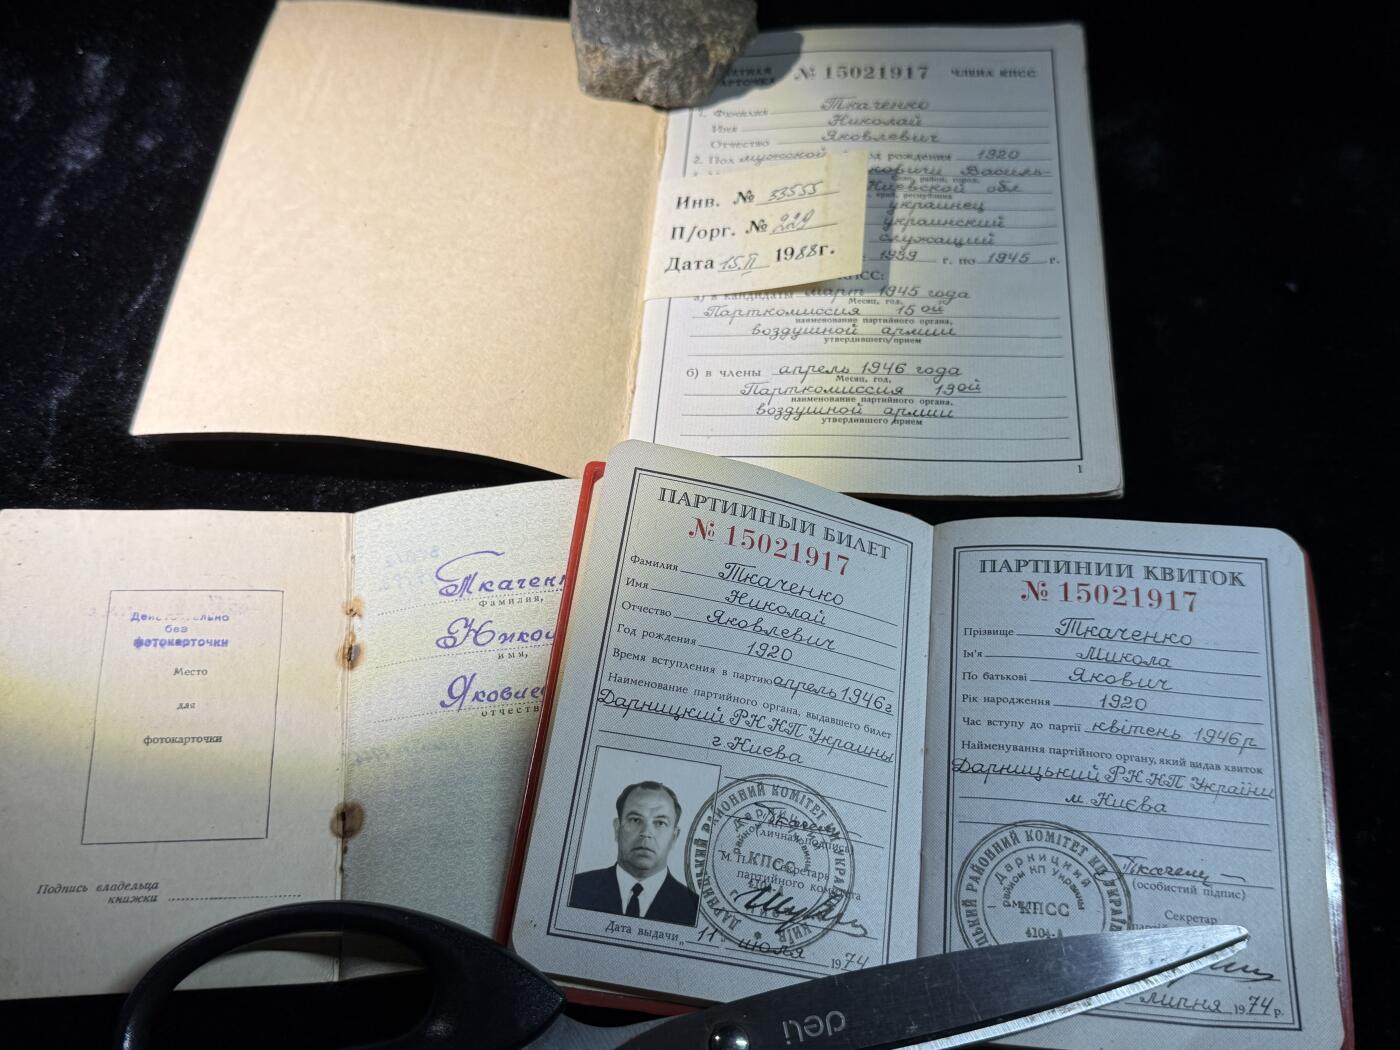 № 15021917 ЧЛЕНА КПСС
1. Фамилия Ткаченко
Имя Николай
Отчество Яковлевич
2. Пол мужской рождения 1920
Василь-
Киевской обл
украинец
украинский
служащий
1939 г. по 1945 г.
КПСС:
а) в кандидаты март 1945 года
Месяц, год,
Парткомиссия 15ой
наименование партийного органа,
воздушной армии
утвердившего прием
б) в члены апрель 1946 года
Месяц, год,
Парткомиссия 19ой
наименование партийного органа,
воздушной армии
утвердившего прием
1
Инв. № 33555
П/орг. № 229
Дата 15.II 1988г.
Действительно
без
фотокарточки
Место
для
фотокарточки
Подпись владельца
книжки
Ткаченк
Фамилия,
Никол
имя,
Яковле
отчеств
ПАРТИЙНЫЙ БИЛЕТ
№ 15021917
Фамилия Ткаченко
Имя Николай
Отчество Яковлевич
Год рождения 1920
Время вступления в партию апрель 1946г
Наименование партийного органа, выдавшего билет
Дарницкий РК КП Украины
г. Киева
(личная подпись)
М. П. Секретарь
партийного комитета
Дата выдачи „11 июля 1974
ДАРНИЦЬКИЙ РАЙОННИЙ КОМІТЕТ
КИЇВ
КПСС
4104-А
ПАРТІЙНИЙ КВИТОК
№ 15021917
Прізвище Ткаченко
Ім'я Микола
По батькові Якович
Рік народження 1920
Час вступу до партії квітень 1946р
Найменування партійного органу, який видав квиток
Дарницький РК КП України
м. Києва
(особистий підпис)
Секретар
липня 1974 р.
ЦЬКИЙ РАЙОННИЙ КОМІТЕТ КП УКРАЇ
Дарницкий
райком КП Украины
КПСС
4104-А
deli